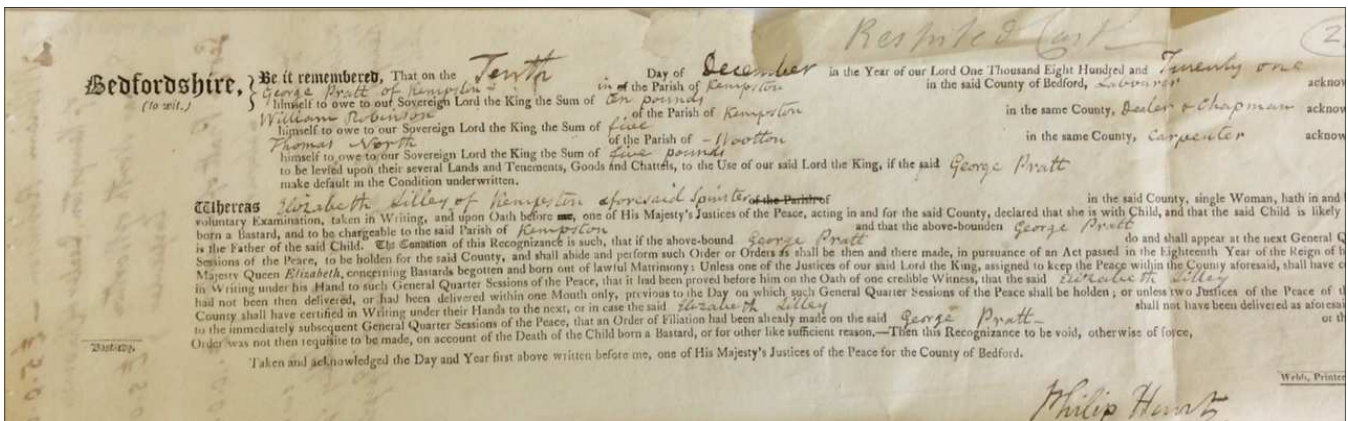 Respited Cast
(2
Bedfordshire, } Be it remembered, That on the Tenth Day of December in the Year of our Lord One Thousand Eight Hundred and Twenty one
(to wit.) George Pratt of Kempston in of the Parish of Kempston in the said County of Bedford, Labourer acknow
himself to owe to our Sovereign Lord the King the Sum of ten pounds
William Robinson of the Parish of Kempston in the same County, Dealer & Chapman acknow
himself to owe to our Sovereign Lord the King the Sum of five
Thomas North of the Parish of - Wootton in the same County, Carpenter acknow
himself to owe to our Sovereign Lord the King the Sum of five pounds
to be levied upon their several Lands and Tenements, Goods and Chattels, to the Use of our said Lord the King, if the said George Pratt
make default in the Condition underwritten.
Whereas Elizabeth Lilley of Kempston aforesaid Spinster of the Parish of in the said County, single Woman, hath in and b
voluntary Examination, taken in Writing, and upon Oath before me, one of His Majesty's Justices of the Peace, acting in and for the said County, declared that she is with Child, and that the said Child is likely
born a Bastard, and to be chargeable to the said Parish of Kempston and that the above-bounden George Pratt
is the Father of the said Child. The Condition of this Recognizance is such, that if the above-bound George Pratt do and shall appear at the next General Q
Sessions of the Peace, to be holden for the said County, and shall abide and perform such Order or Orders as shall be then and there made, in pursuance of an Act passed in the Eighteenth Year of the Reign of h
Majesty Queen Elizabeth, concerning Bastards begotten and born out of lawful Matrimony: Unless one of the Justices of our said Lord the King, assigned to keep the Peace within the County aforesaid, shall have c
in Writing under his Hand to such General Quarter Sessions of the Peace, that it had been proved before him on the Oath of one credible Witness, that the said Elizabeth Lilley
had not been then delivered, or had been delivered within one Month only, previous to the Day on which such General Quarter Sessions of the Peace shall be holden; or unless two Justices of the Peace of t
County shall have certified in Writing under their Hands to the next, or in case the said Elizabeth Lilley shall not have been delivered as aforesai
to the immediately subsequent General Quarter Sessions of the Peace, that an Order of Filiation had been already made on the said George Pratt - or th
Order was not then requisite to be made, on account of the Death of the Child born a Bastard, or for other like sufficient reason.—Then this Recognizance to be void, otherwise of force,
Bastardy.
Taken and acknowledged the Day and Year first above written before me, one of His Majesty's Justices of the Peace for the County of Bedford.
Webb, Printer
Philip Hunt